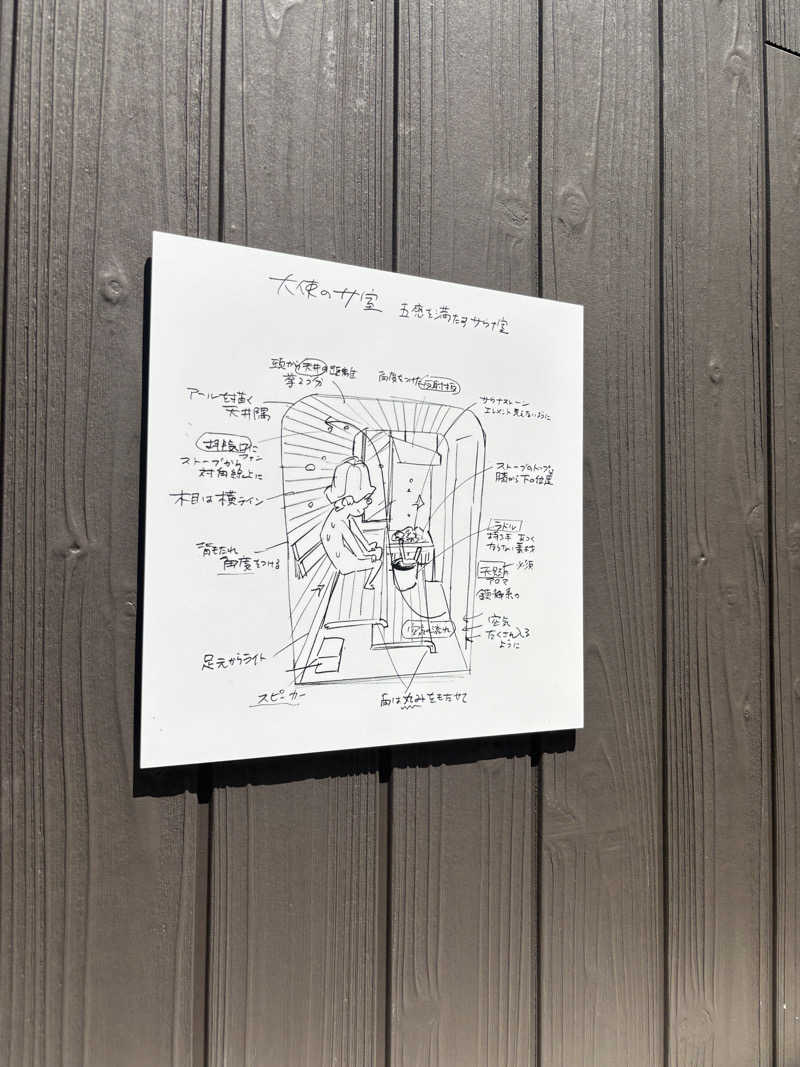 大使のサ室
五感を満たすサウナ室
頭から天井の距離
拳2つ分
角度をつけた反射板
アールを描く
天井隅
サウナストーン
エレメント見えないように
排気口に
ファン
ストーブから
対角線上に
ストーブのトップは
膝から下の位置
木目は横ライン
ラドル
持ち手 あつく
ならない素材
背もたれ
角度をつける
天然の
必須
アロマ
空気の流れ
空気
たくさん入る
ように
足元からライト
スピーカー
角は丸みをもたせて